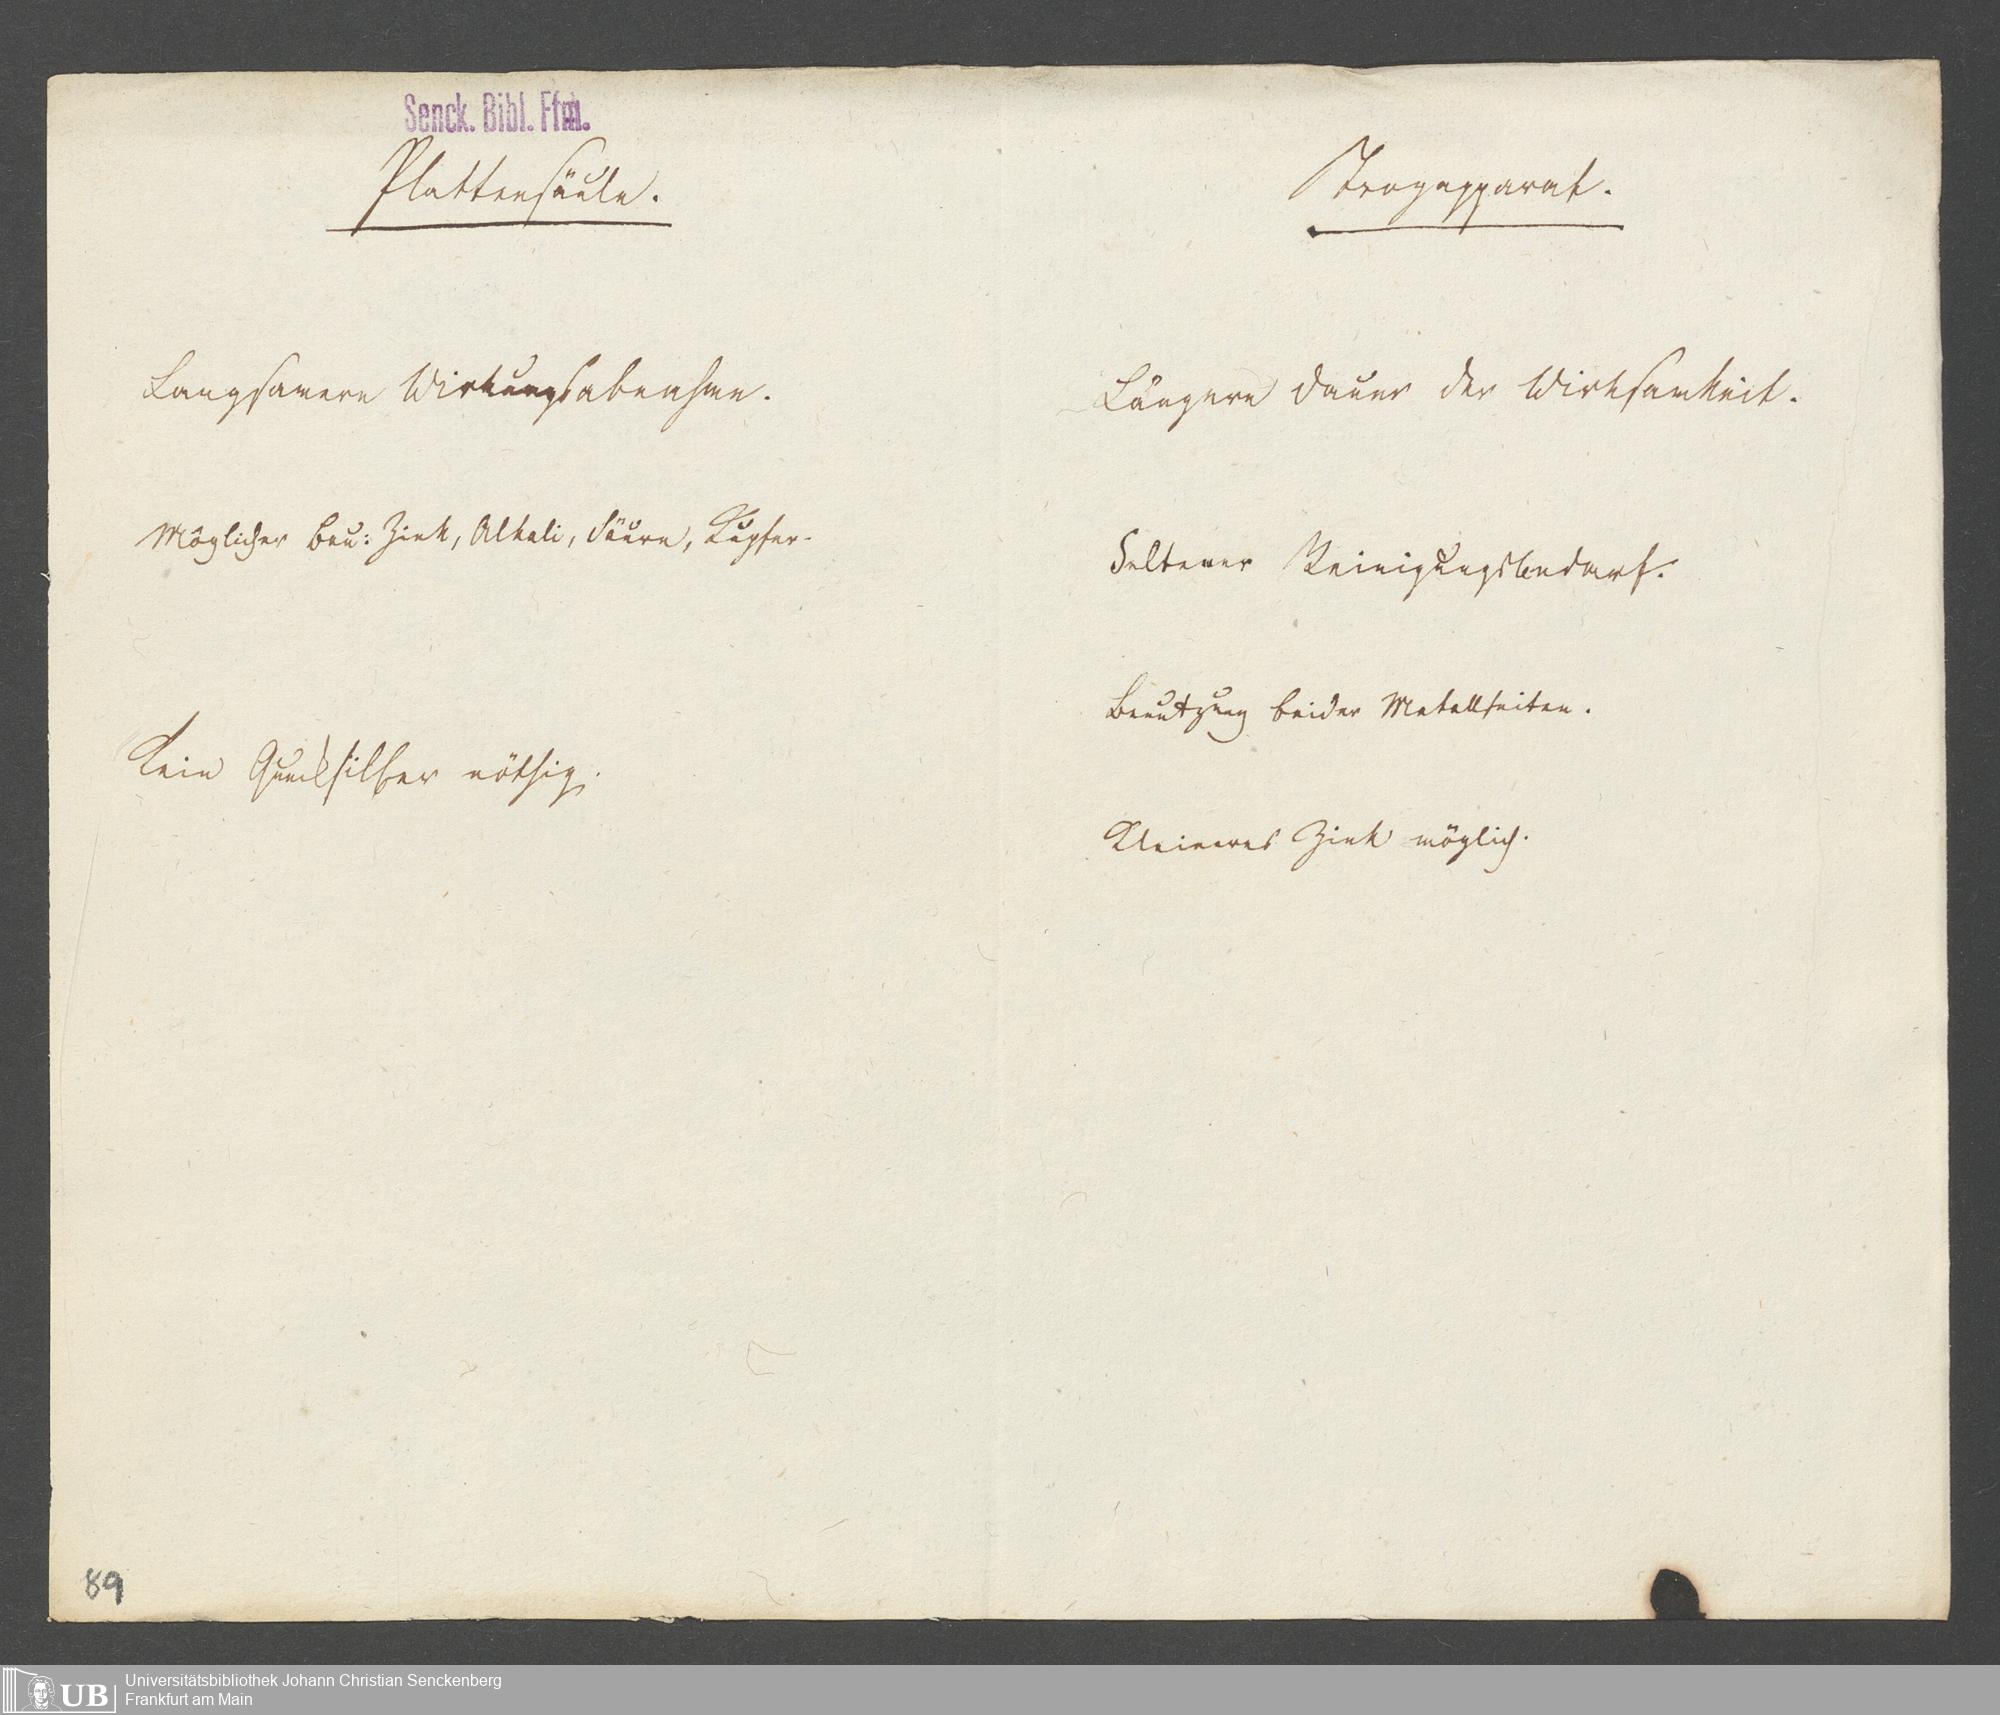 Senck. Bibl. Ffm.
Plattensäule.
Langsamere Wirkungsabnahme.
Möglicher Bau: Zink, Alkali, Säure, Kupfer.
Kein Quecksilber nöthig.
Trogapparat.
Längere Dauer der Wirksamkeit.
Seltener Reinigungsbedarf.
Benutzung beider Metallseiten.
Kleineres Zink möglich.
89
UB
Universitätsbibliothek Johann Christian Senckenberg
Frankfurt am Main